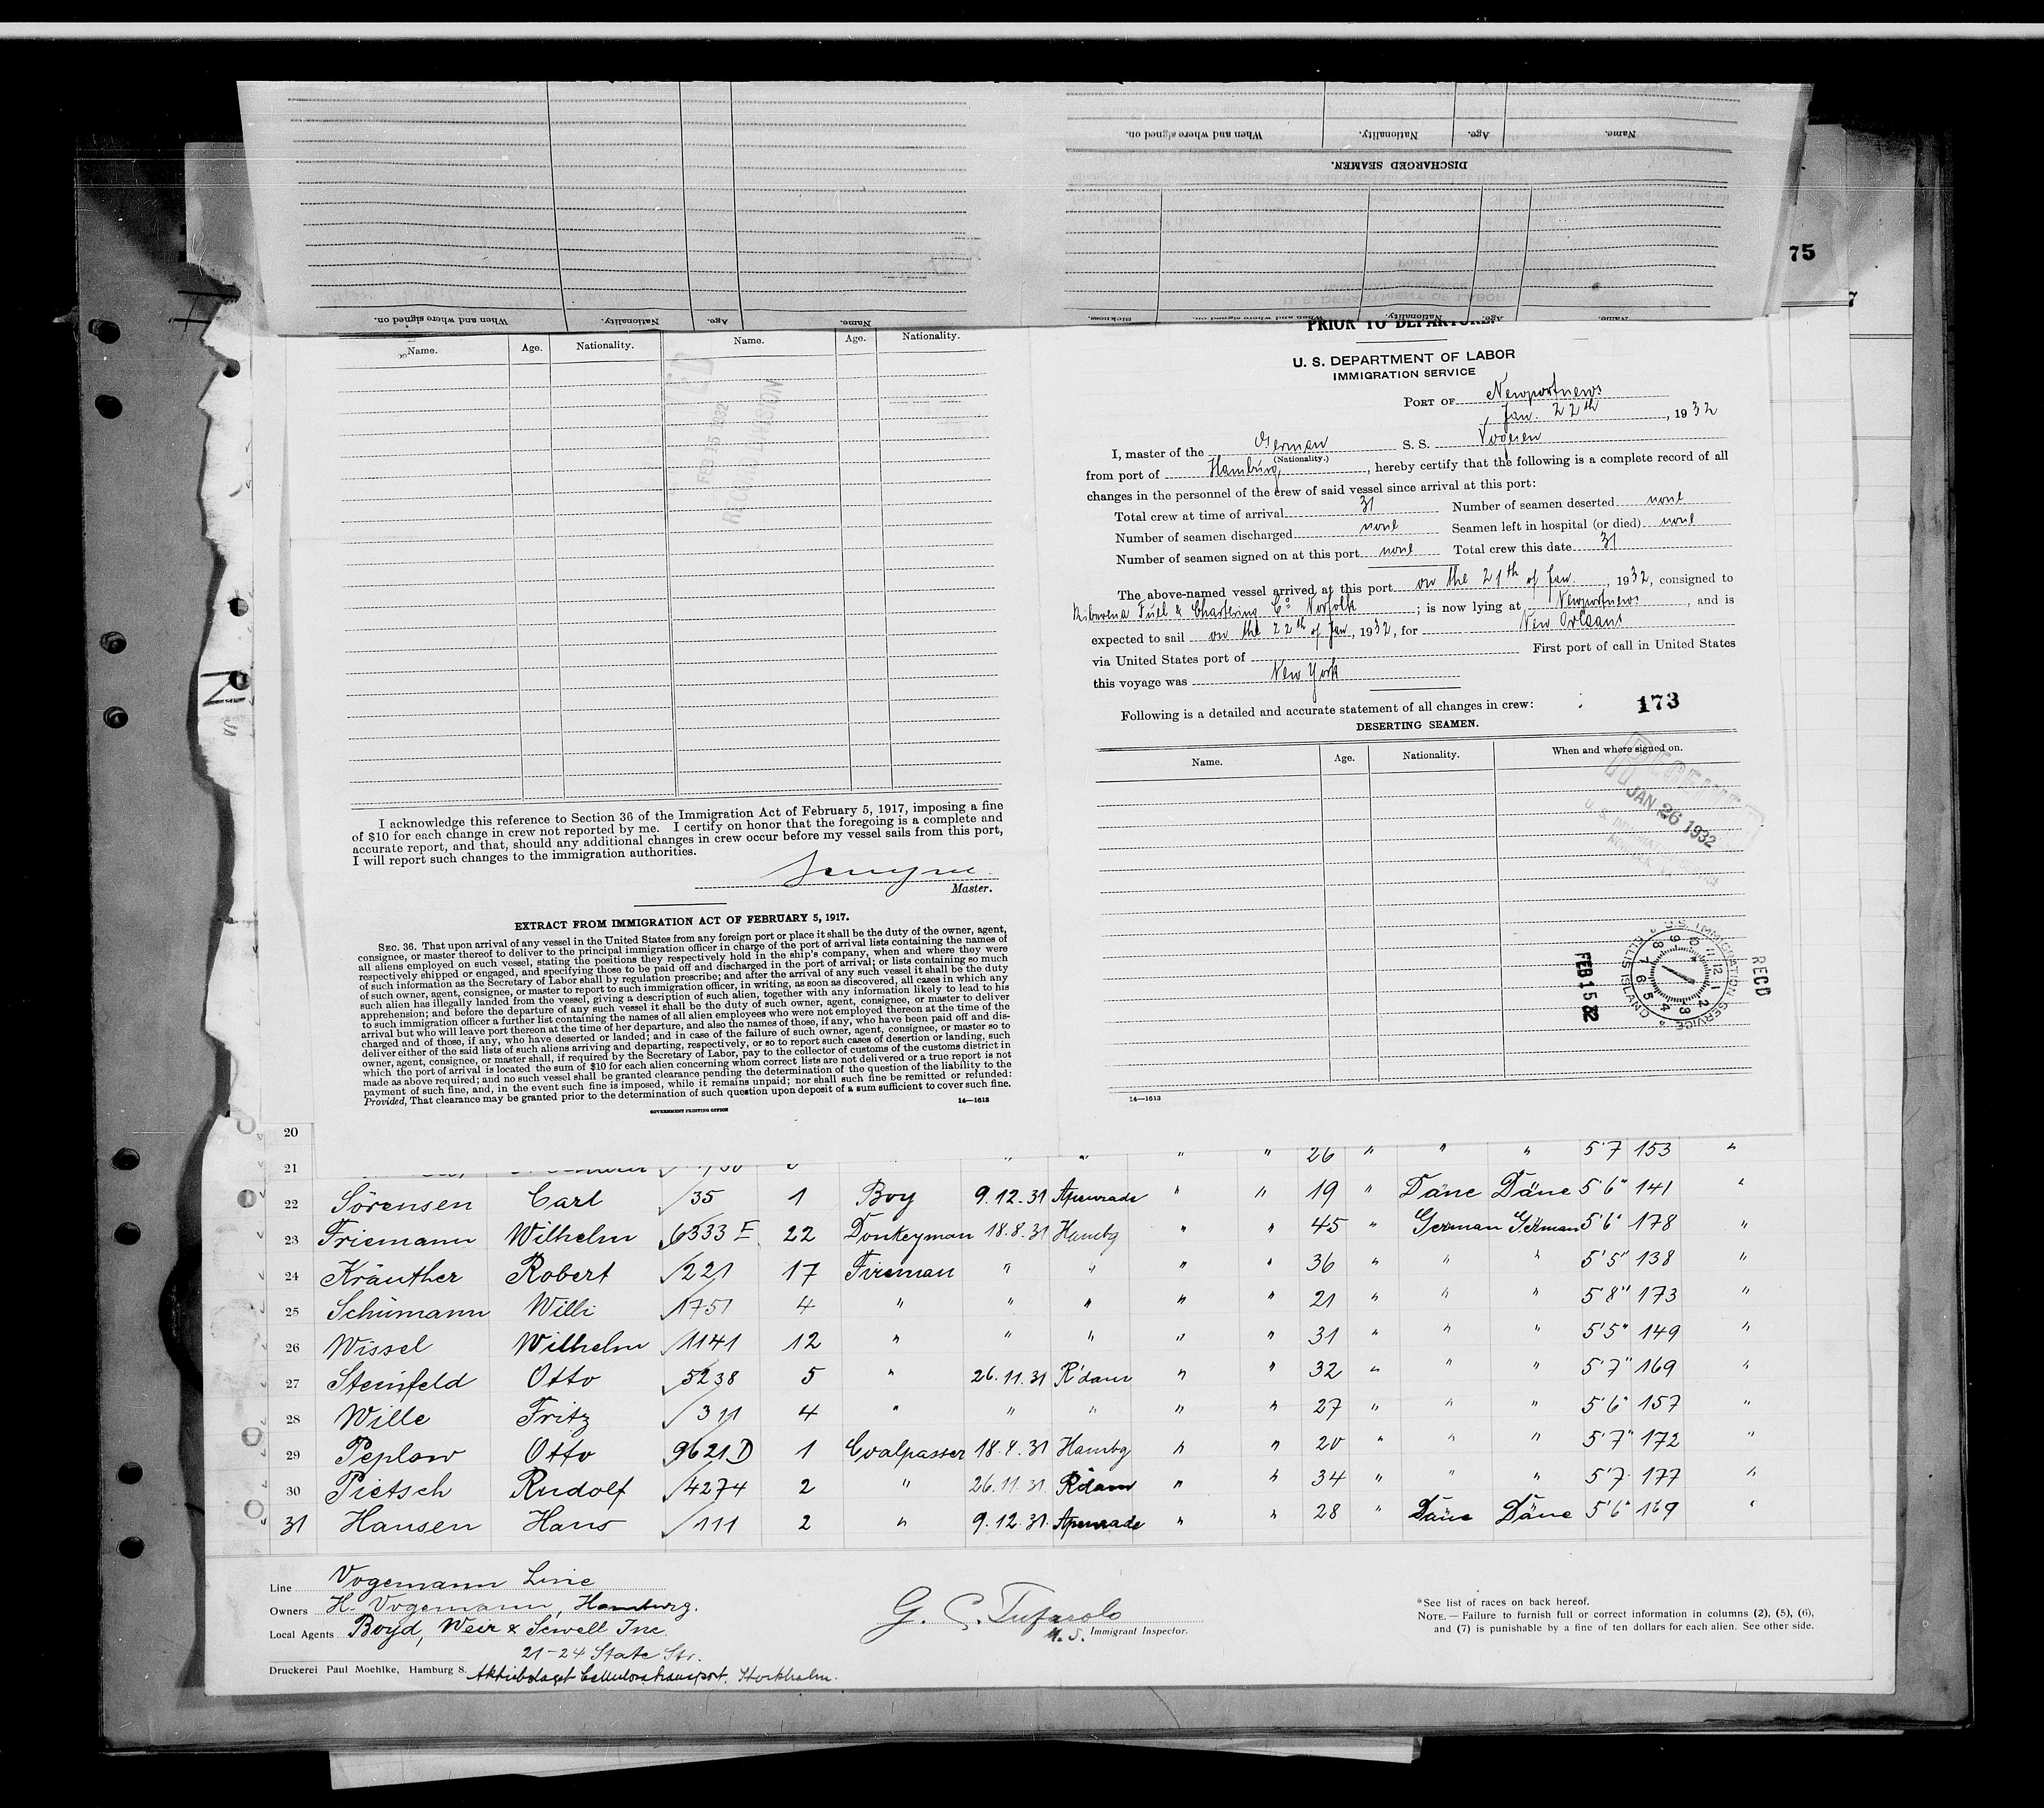 Name. Age. Nationality. When and where signed on.
DISCHARGED SEAMEN.
When and where signed on. Nationality. Age. Name.
75
7
Name. Age. Nationality. Name. Age. Nationality.
FEB 15 1932
RECORD DIVISION
I acknowledge this reference to Section 36 of the Immigration Act of February 5, 1917, imposing a fine
of $10 for each change in crew not reported by me. I certify on honor that the foregoing is a complete and
accurate report, and that, should any additional changes in crew occur before my vessel sails from this port,
I will report such changes to the immigration authorities.
Master.
EXTRACT FROM IMMIGRATION ACT OF FEBRUARY 5, 1917.
SEC. 36. That upon arrival of any vessel in the United States from any foreign port or place it shall be the duty of the owner, agent,
consignee, or master thereof to deliver to the principal immigration officer in charge of the port of arrival lists containing the names of
all aliens employed on such vessel, stating the positions they respectively hold in the ship's company, when and where they were
respectively shipped or engaged, and specifying those to be paid off and discharged in the port of arrival; or lists containing so much
of such information as the Secretary of Labor shall by regulation prescribe; and after the arrival of any such vessel it shall be the duty
of such owner, agent, consignee, or master to report to such immigration officer, in writing, as soon as discovered, all cases in which any
such alien has illegally landed from the vessel, giving a description of such alien, together with any information likely to lead to his
apprehension; and before the departure of any such vessel it shall be the duty of such owner, agent, consignee, or master to deliver
to such immigration officer a further list containing the names of all alien employees who were not employed thereon at the time of the
arrival but who will leave port thereon at the time of her departure, and also the names of those, if any, who have been paid off and dis-
charged and of those, if any, who have deserted or landed; and in case of the failure of such owner, agent, consignee, or master so to
deliver either of the said lists of such aliens arriving and departing, respectively, or so to report such cases of desertion or landing, such
owner, agent, consignee, or master shall, if required by the Secretary of Labor, pay to the collector of customs of the customs district in
which the port of arrival is located the sum of $10 for each alien concerning whom correct lists are not delivered or a true report is not
made as above required; and no such vessel shall be granted clearance pending the determination of the question of the liability to the
payment of such fine, and, in the event such fine is imposed, while it remains unpaid; nor shall such fine be remitted or refunded:
Provided, That clearance may be granted prior to the determination of such question upon deposit of a sum sufficient to cover such fine.
GOVERNMENT PRINTING OFFICE
14—1613
PRIOR TO DEPARTURE.
U. S. DEPARTMENT OF LABOR
IMMIGRATION SERVICE
PORT OF Newportnews
Jan. 22th, 1932
I, master of the German S. S. Vogesen
(Nationality.)
from port of Hamburg, hereby certify that the following is a complete record of all
changes in the personnel of the crew of said vessel since arrival at this port:
Total crew at time of arrival 31 Number of seamen deserted none
Number of seamen discharged none Seamen left in hospital (or died) none
Number of seamen signed on at this port none Total crew this date 31
The above-named vessel arrived at this port on the 21th of Jan., 1932, consigned to
Fuel & Chartering Co Norfolk; is now lying at Newportnews, and is
expected to sail on the 22th of Jan, 1932, for New Orleans
via United States port of First port of call in United States
this voyage was New York
Following is a detailed and accurate statement of all changes in crew:
173
DESERTING SEAMEN.
Name. Age. Nationality. When and where signed on.
RECEIVED
JAN 26 1932
U. S. IMMIGRATION SERVICE
NORFOLK, VA.
U.S. IMMIGRATION SERVICE ELLIS ISLAND
RECD
FEB 15 32
14—1613
20
21 " " " " 26 " " " 5'7 153 "
22 Sörensen Carl 35 1 Boy 9.12.31 Apenrade " " 19 " Däne Däne 5'6" 141 "
23 Friemann Wilhelm 6333 E 22 Donkeyman 18.8.31 Hambg " " 45 " German German 5'6" 178 "
24 Kräuther Robert 221 17 Fireman " " " " 36 " " " 5'5" 138 "
25 Schümann Willi 1751 4 " " " " " 21 " " " 5'8" 173 "
26 Wissel Wilhelm 1141 12 " " " " " 31 " " " 5'5" 149 "
27 Steinfeld Otto 5238 5 " 26.11.31 R'dam " " 32 " " " 5'7" 169 "
28 Wille Fritz 311 4 " " " " " 27 " " " 5'6" 157 "
29 Peplow Otto 9621 D 1 Coalpasser 18.8.31 Hambg " " 20 " " " 5'7" 172 "
30 Pietsch Rudolf 4274 2 " 26.11.31 R'dam " " 34 " " " 5'7 177 "
31 Hansen Hans 111 2 " 9.12.31. Apenrade " " 28 " Däne Däne 5'6" 169 "
Line Vogemann Line
Owners H. Vogemann, Hamburg.
Local Agents Boyd, Weir & Sewell Inc
21-24 State Str.
Druckerei Paul Moehlke, Hamburg 8. Aktiebolaget Cellulosatransport, Stockholm.
G. C. Tufarolo
U.S. Immigrant Inspector.
*See list of races on back hereof.
NOTE. — Failure to furnish full or correct information in columns (2), (5), (6),
and (7) is punishable by a fine of ten dollars for each alien. See other side.